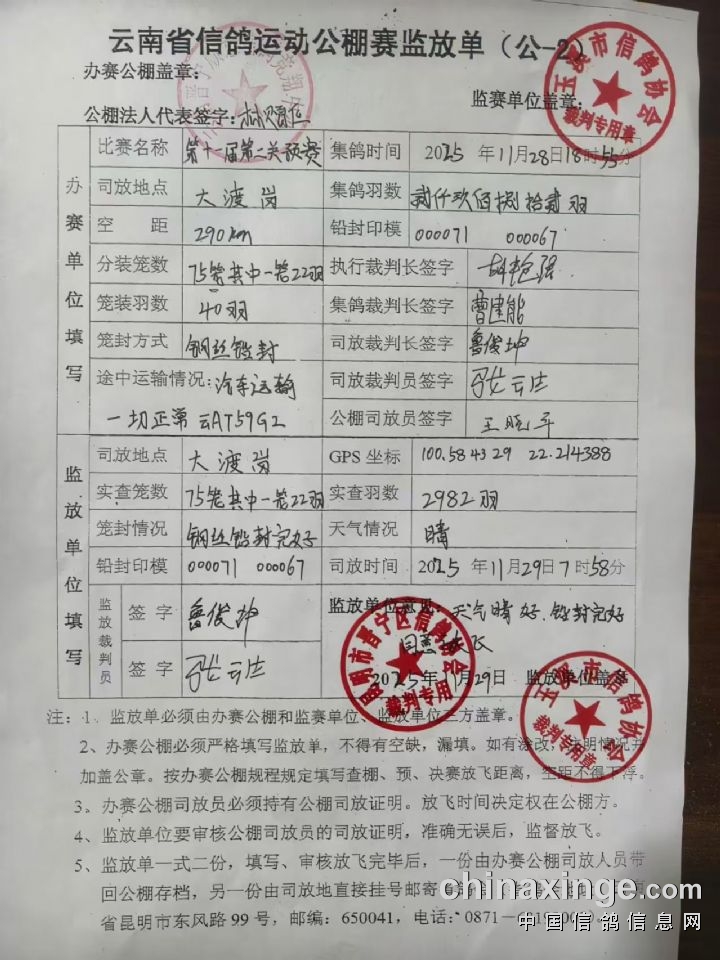 云南省信鸽运动公棚赛监放单（公-2）
办赛公棚盖章：
监赛单位盖章：
公棚法人代表签字：
办赛单位填写
比赛名称 第十一届第二关预赛 集鸽时间 2025年11月28日18时55分
司放地点 大渡岗 集鸽羽数 贰仟玖佰捌拾贰羽
空距 290km 铅封印模 000071 000067
分装笼数 75笼其中一笼22羽 执行裁判长签字
笼装羽数 40羽 集鸽裁判长签字 曹建能
笼封方式 钢丝铅封 司放裁判长签字 鲁俊坤
途中运输情况：汽车运输 司放裁判员签字
一切正常 云AT59G2 公棚司放员签字 王晓平
监放单位填写
司放地点 大渡岗 GPS坐标 100.584329 22.214388
实查笼数 75笼其中一笼22羽 实查羽数 2982羽
笼封情况 钢丝铅封完好 天气情况 晴
铅封印模 000071 000067 司放时间 2025年11月29日7时58分
监放裁判员 签字 鲁俊坤 监放单位意见：天气晴好、铅封完好
同意放飞
签字 2025年11月29日 监放单位盖章
玉溪市信鸽协会
裁判专用章
昆明市晋宁区信鸽协会
裁判专用
玉溪市信鸽协会
裁判专用章
注：1、监放单必须由办赛公棚和监赛单位、监放单位三方盖章。
2、办赛公棚必须严格填写监放单，不得有空缺，漏填。如有涂改，注明情况并
加盖公章。按办赛公棚规程规定填写查棚、预、决赛放飞距离，空距不得下浮。
3、办赛公棚司放员必须持有公棚司放证明。放飞时间决定权在公棚方。
4、监放单位要审核公棚司放员的司放证明，准确无误后，监督放飞。
5、监放单一式二份，填写、审核放飞完毕后，一份由办赛公棚司放人员带
回公棚存档，另一份由司放地直接挂号邮寄
省昆明市东风路99号，邮编：650041，电话：0871—
chinaxinge.com
中国信鸽信息网